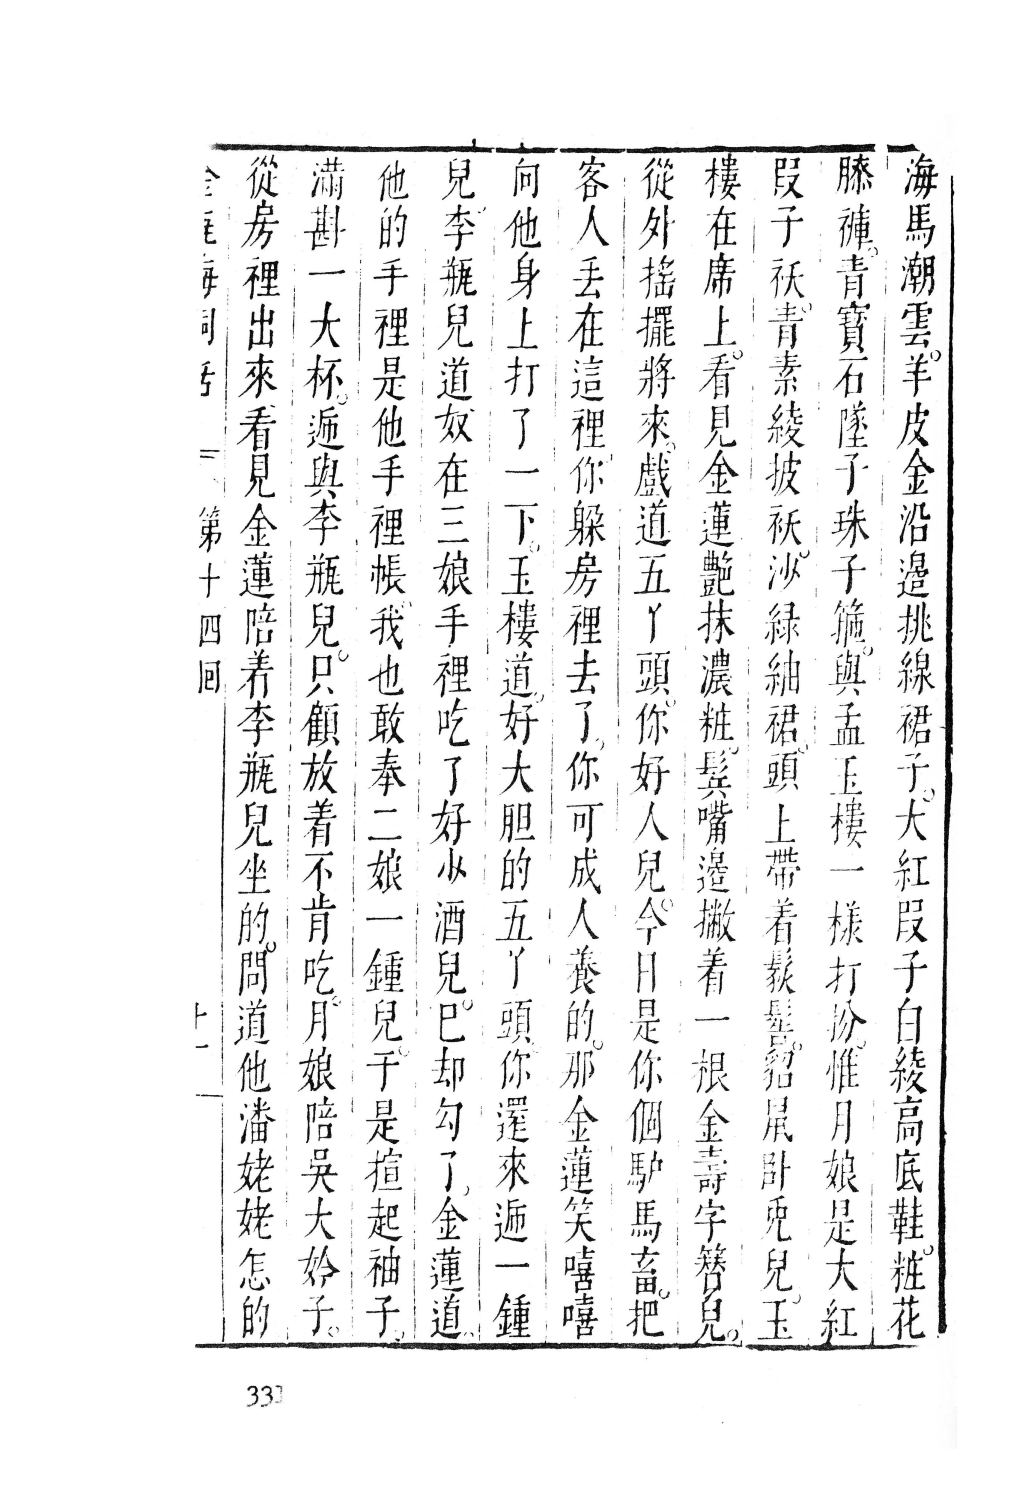 海馬潮雲。羊皮金沿邉挑線裙子。大紅叚子白綾高底鞋。粧花
膝褲。青寳石墜子珠子箍。與孟玉樓一樣打扮。惟月娘是大紅
叚子袄。青素綾披袄。沙綠紬裙。頭上帶着䯼髻。貂鼠卧兎兒。玉
樓在席上。看見金蓮艷抹濃粧。鬂嘴邉撇着一根金壽字簪兒。
從外搖擺將來。戲道五丫頭。你好人兒。今日是你個馿馬畜。把
客人丢在這裡。你躲房裡去了。你可成人養的。那金蓮笑嘻嘻
向他身上打了一下。玉樓道。好大胆的五丫頭。你還來逓一鍾
兒。李瓶兒道奴在三娘手裡吃了好少酒兒。巴却勾了。金蓮道。
他的手裡是他手裡帳。我也敢奉二娘一鍾兒。于是揎起袖子。
滿斟一大杯。逓與李瓶兒。只顧放着不肯吃。月娘陪吳大妗子。
從房裡出來。看見金蓮陪着李瓶兒坐的。問道他潘姥姥怎的
第十四回
十一